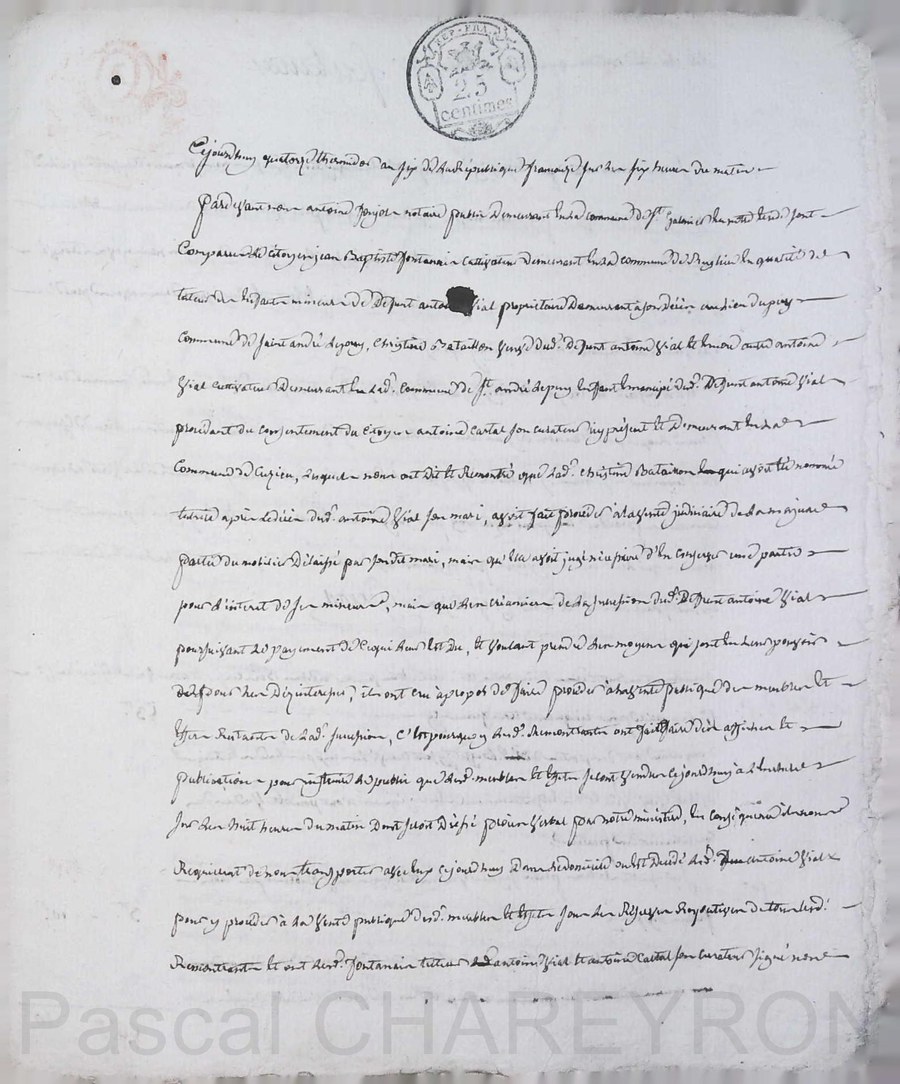 REP. FRA.
25
centimes
Cejourdhuy quatorze thermidor an six de la République française sur les six heures du matin
Pardevant nous antoine notaire public demeurant en la commune de St Galmier soussigné sont
Comparus le Citoyen jean Baptiste fontanin Cultivateur demeurant en la commune de en qualité de
tuteur des enfants mineurs de défunt antoine Vial propriétaire demeurant à son décès au lieu du puy
Commune de saint andré le puy, christine Bataillon veuve dud. défunt antoine Vial et encore autre antoine
Vial cultivateur demeurant en lad. Commune de St andré le puy enfant émancipé dud. défunt antoine Vial
procédant du consentement du Citoyen antoine Cartal son curateur icy présent et demeurant en la
Commune de Cuzieu, lesquels nous ont dit et Remontré que lad. christine Bataillon qui avoit été nommée
tutrice après le décès dud. antoine Vial son mari, avoit fait procéder à la vente judiciaire de la majeure
partie du mobilier délaissé par sondit mari, mais qu'elle avoit jugé nécessaire d'en conserver une partie
pour l'interet de ses mineurs, mais que les créanciers de la succession dud. défunt antoine Vial
poursuivant le payement de ce qui leur est du, et voulant prendre les moyens qui sont en leur pouvoir
de les désintéresser, ils ont cru à propos de faire procéder à la vente publique des meubles et
effets Restants de lad. succession, c'est pourquoy lesd. Remontrants ont fait faire des affiches et
publications pour instruire le public que lesd. meubles et effets seront vendus cejourdhuy à
sur les huit heures du matin dont seroit dressé procès verbal par notre ministère, en conséquence ils nous
Requièrent de nous transporter avec eux cejourdhuy dans le domicile où est décédé led. antoine Vial
pour y procéder à la vente publique desd. meubles et effets sous les Réserves Respectives de tous lesd.
Remontrants et ont lesd. fontanin tuteur antoine Vial et antoine Cartal son curateur signé non
Pascal CHAREYRON